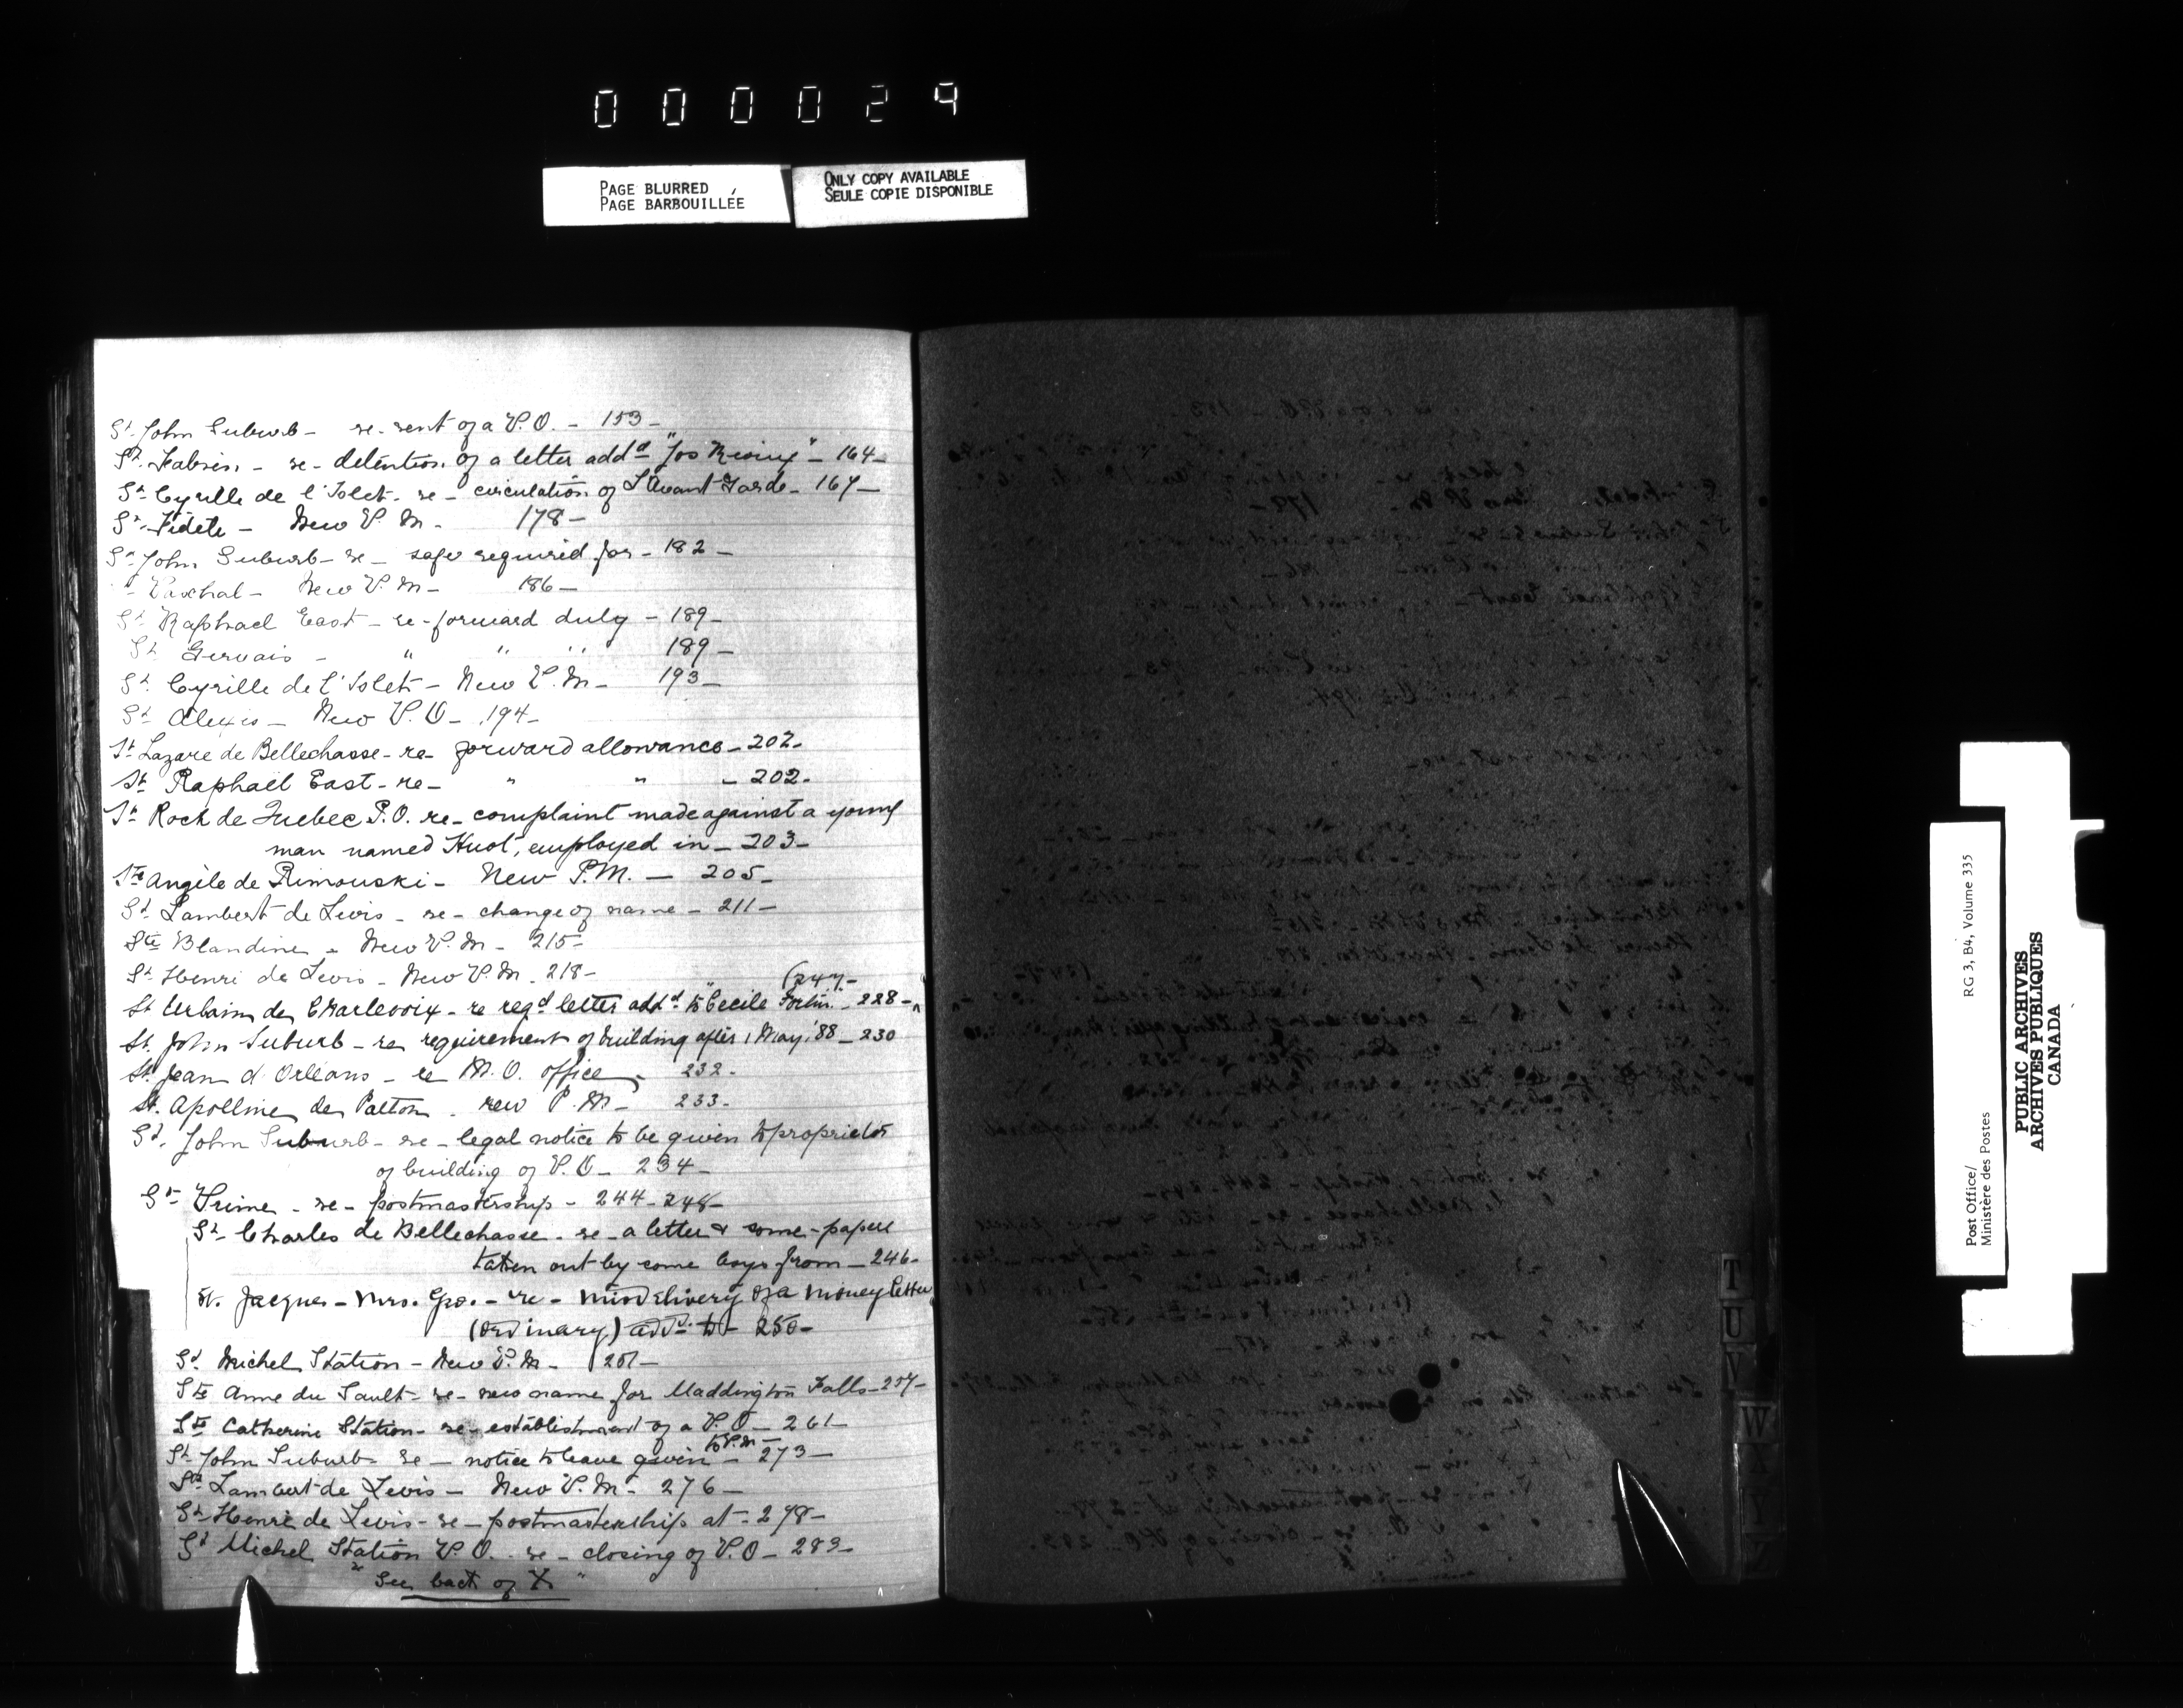 000029
PAGE BLURRED
PAGE BARBOUILLÉE
ONLY COPY AVAILABLE
SEULE COPIE DISPONIBLE
St John Suburb - re - rent of a P.O. - 153 -
St. Fabien - re - detention of a letter addd "Jos - 164 -
St Cyrille de l'Islet - re - circulation of L'Avant Garde - 167 -
St. Fidele - New P.M. - 178 -
St John Suburb - re - safe required for - 182 -
St Paschal - New P.M - 186 -
St Raphael East - re - forward duly - 189 -
St Gervais - " " " 189 -
St. Cyrille de l'Islet - New P.M - 193 -
St Alexis - New P.O - 194 -
St Lazare de Bellechasse - re - forward allowance - 202 -
St Raphaël East - re - " " - 202 -
St Roch de Quebec P.O. re - complaint made against a young
man named Huot, employed in - 203 -
Ste Angèle de Rimouski - New P.M. - 205 -
St Lambert de Levis - re - change of name - 211 -
Ste Blandine - New P.M - 215 -
St Henri de Levis - New P.M. 218 -
(247 -
St Urbain de Charlevoix - re regd letter addd to "Cecile Fortin - 228 -
St. John Suburb - re requirement of building after 1 May '88 - 230
St. Jean d'Orleans - re M.O. office - 232 -
St. Apolline de Patton - new P.M - 233 -
St. John Suburb - re - legal notice to be given to proprietor
of building of P.O - 234 -
St Prime - re - postmastership - 244 - 248 -
St Charles de Bellechasse - re - a letter & some - papers
taken out by some boys from - 246 -
St. Jacques - Mrs. Geo. - re - misdelivery of a money letter
(ordinary) addd to - 250 -
St Michel Station - New P.M - 251 -
Ste Anne du Sault - re - new name for Maddington Falls - 257 -
Ste Catherine Station - re - establishment of a P.O - 261 -
to P.M -
St John Suburb - re - notice to leave given - 273 -
St Lambert de Levis - New P.M - 276 -
St Henri de Levis - re - postmastership at - 278 -
St Michel Station P.O. - re - closing of P.O - 283 -
" See back of X "
T
U
V
W
X
Y
Z
Post Office/
Ministère des Postes
RG 3, B4, Volume 335
PUBLIC ARCHIVES
ARCHIVES PUBLIQUES
CANADA